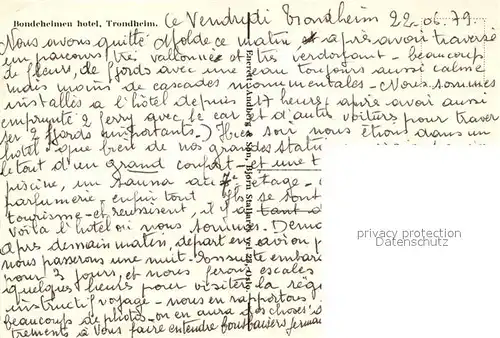 Bondeheimen hotel, Trondheim.
Ce Vendredi Trondheim 22.06.79
Nous avons quitté Molde ce matin et après avoir traversé
un parcours très vallonnée et très verdoyant - beaucoup
de fleurs, de fjords avec une eau toujours aussi calme
mais moins de cascades monumentales - Nous sommes
installés a l'hôtel depuis 17 heures après avoir aussi
emprunté 2 ferry avec le car et d'autres voitures pour traver
ser 2 fjords importants.) Hier soir nous étions dans un
hotel que bien de nos grandes statu
le tout d'un grand confort - et une t
piscine, un sauna au 7e étage -
parfumerie - enfin tout Ils se sont
tourisme - et réussissent, il y a tant d
Voila l'hotel où nous sommes. Dema
après demain matin, depart en avion p
nous passerons une nuit - Ensuite embar
pour 3 jours, et nous ferons escales
quelques heures pour visiter la rég
instructif voyage - nous en rapportons
beaucoup de photos - on en aura des choses
trements à vous faire entendre bons baisers
Enerett: Lundberg & Søn, Bjørn Stallares vei 22, Oslo
privacy protection
Datenschutz